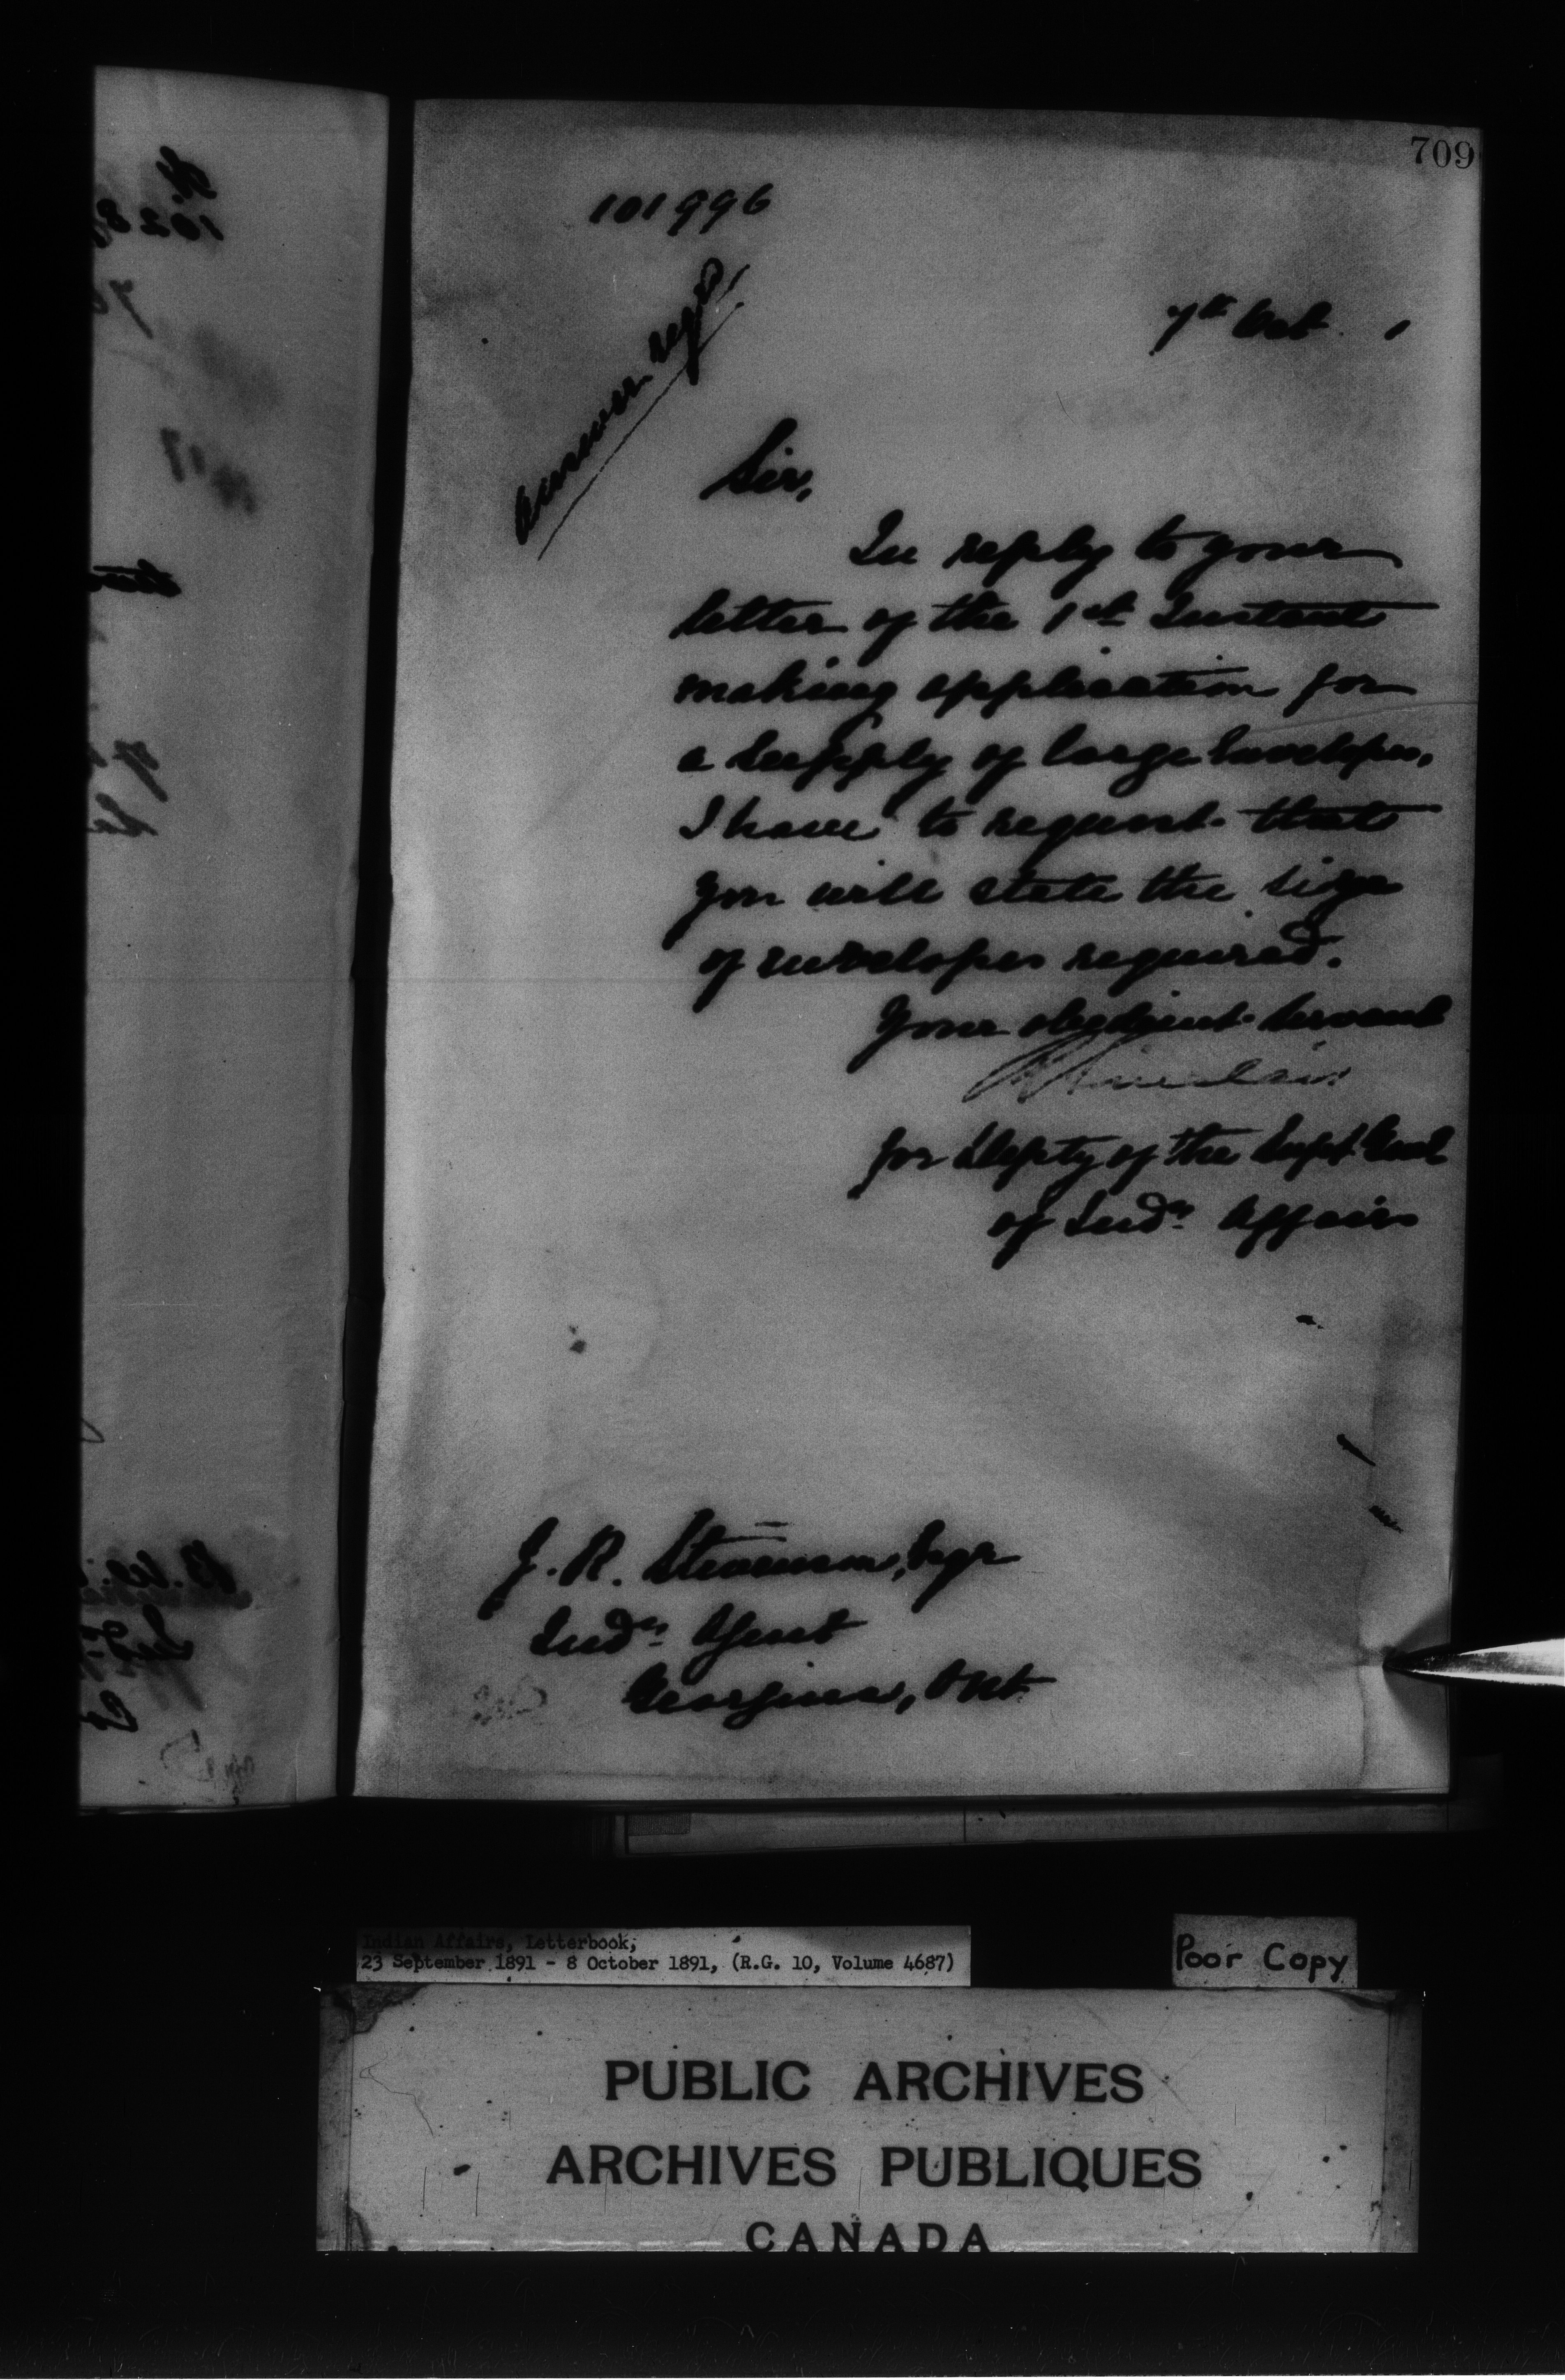 709
101996
7th Oct. 1
Answer reqd.
Sir,
In reply to your
letter of the 1st Instant
making application for
a Supply of large Envelopes,
I have to request that
you will state the size
of envelopes required.
Your obedient Servant
Sinclair
for Depty of the Supt Genl
of Indn Affairs
J. R. Stevenson, Esqr
Indn Agent
Georgina, Ont
Indian Affairs, Letterbook,
23 September 1891 - 8 October 1891, (R.G. 10, Volume 4687)
Poor Copy
PUBLIC ARCHIVES
ARCHIVES PUBLIQUES
CANADA